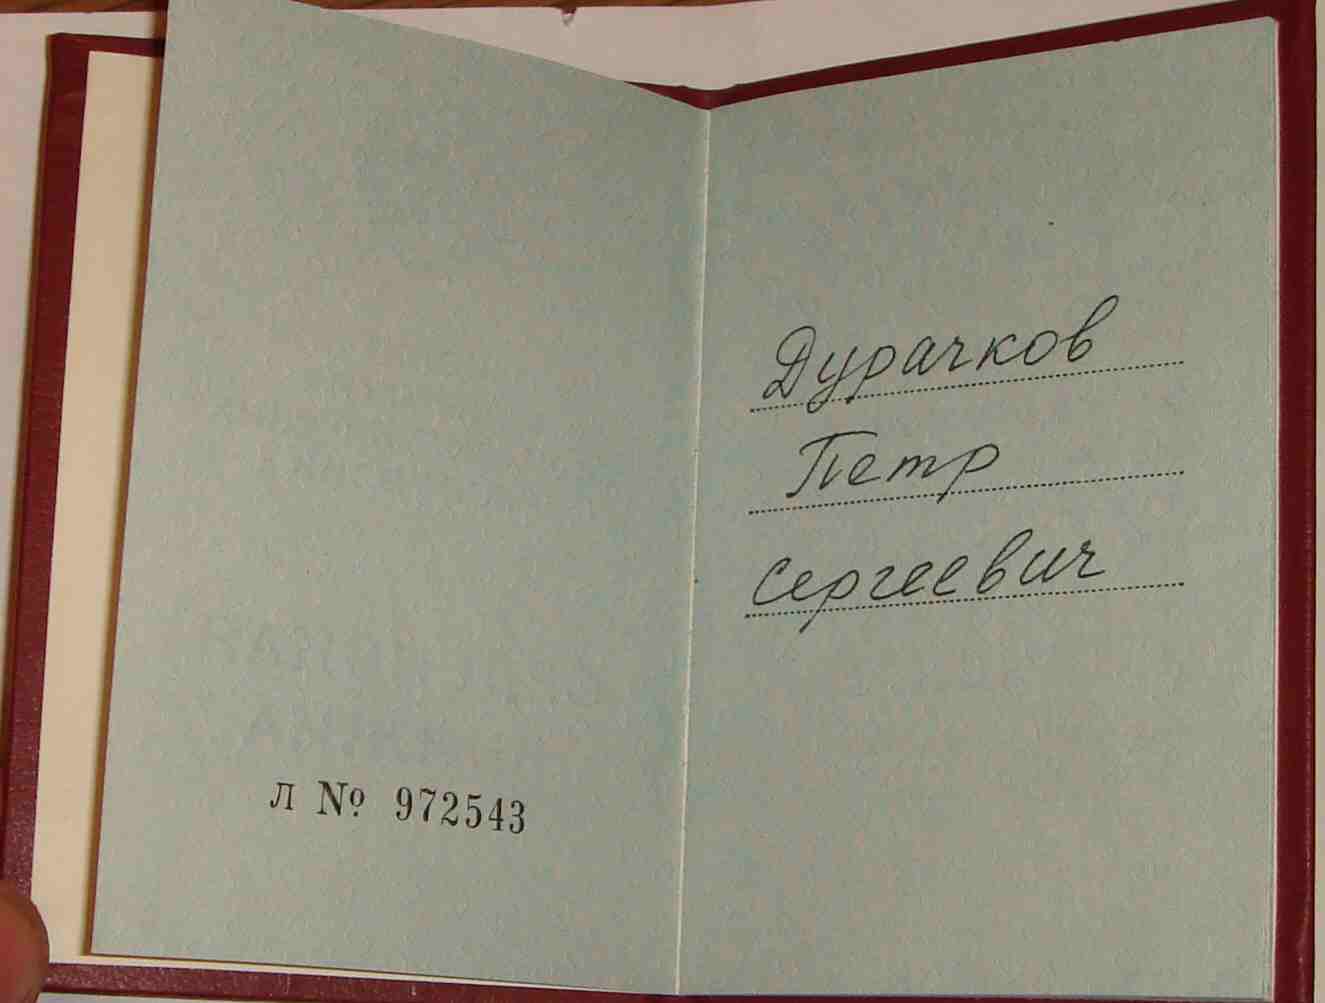 л № 972543
Дурачков
Петр
Сергеевич